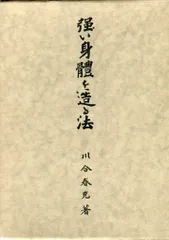 强い身體を造る法
川合春充著